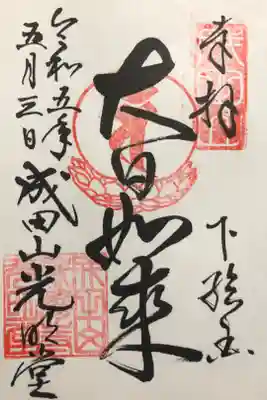 奉拝
下総国
大日如来
成田山光明堂
令和五年
五月三日